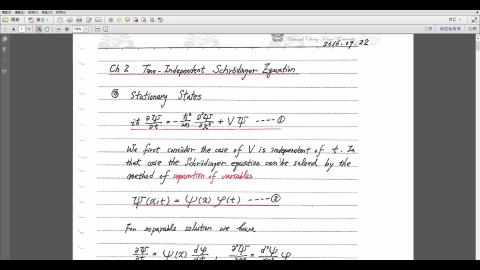 2016.09.22
Ch 2 Time-Independent Schrödinger Equation
◎ Stationary States
iħ ∂Ψ/∂t = -ħ²/2m ∂²Ψ/∂x² + VΨ ----①
We first consider the case of V is independent of t. In
that case the Schrödinger equation can be solved by the
method of separation of variables
Ψ(x,t) = ψ(x) φ(t) ----②
For separable solution we have
∂Ψ/∂t = ψ(x) dφ/dt , ∂²Ψ/∂x² = d²ψ/dx² φ